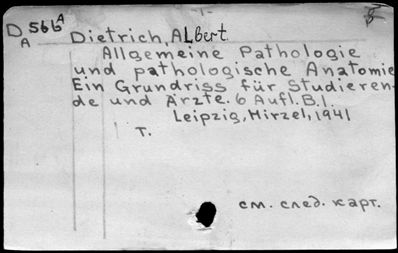 -1-
D 566 A
A
Dietrich, Albert.
Allgemeine Pathologie
und pathologische Anatomie
Ein Grundriss für Studieren-
de und Ärzte. 6 Aufl. B.1.
Leipzig, Hirzel, 1941
T.
см. след. карт.